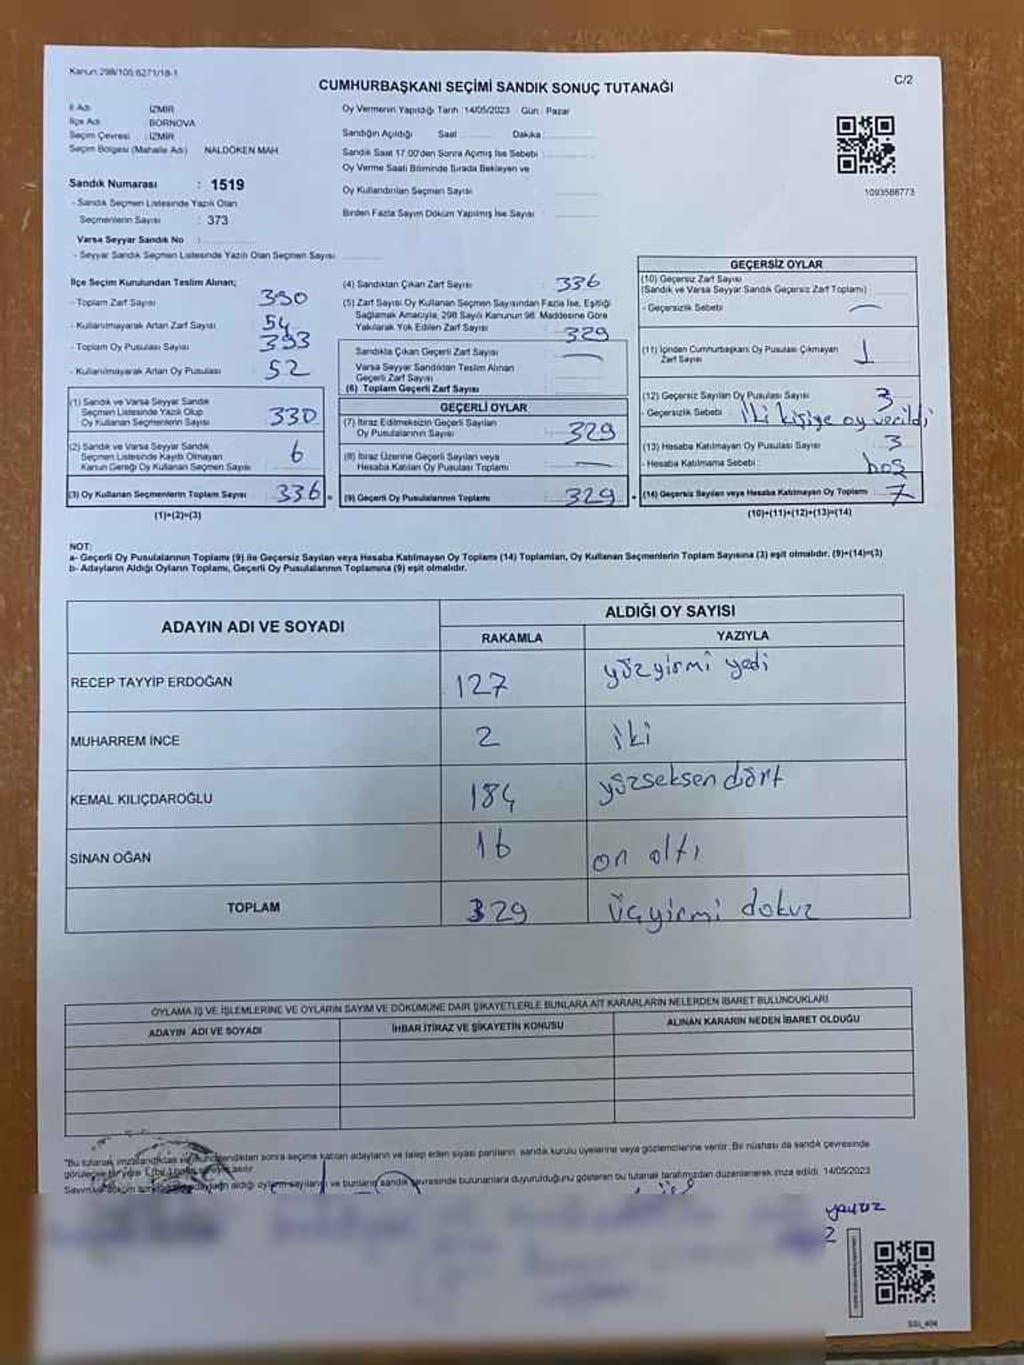 Kanun:298/105;6271/18-1
C/2
CUMHURBAŞKANI SEÇİMİ SANDIK SONUÇ TUTANAĞI
İl Adı : İZMİR
İlçe Adı : BORNOVA
Seçim Çevresi : İZMİR
Seçim Bölgesi (Mahalle Adı) NALDÖKEN MAH.
Sandık Numarası : 1519
- Sandık Seçmen Listesinde Yazılı Olan
Seçmenlerin Sayısı : 373
Varsa Seyyar Sandık No :
- Seyyar Sandık Seçmen Listesinde Yazılı Olan Seçmen Sayısı
Oy Vermenin Yapıldığı Tarih :14/05/2023 Gün : Pazar
Sandığın Açıldığı Saat Dakika
Sandık Saat 17.00'den Sonra Açılmış İse Sebebi :
Oy Verme Saati Bitiminde Sırada Bekleyen ve
Oy Kullandırılan Seçmen Sayısı
Birden Fazla Sayım Döküm Yapılmış İse Sayısı :
1093588773
İlçe Seçim Kurulundan Teslim Alınan;
- Toplam Zarf Sayısı 390
- Kullanılmayarak Artan Zarf Sayısı 54
- Toplam Oy Pusulası Sayısı 393
- Kullanılmayarak Artan Oy Pusulası 52
(1) Sandık ve Varsa Seyyar Sandık
Seçmen Listesinde Yazılı Olup
Oy Kullanan Seçmenlerin Sayısı 330
(2) Sandık ve Varsa Seyyar Sandık
Seçmen Listesinde Kayıtlı Olmayan
Kanun Gereği Oy Kullanan Seçmen Sayısı 6
(3) Oy Kullanan Seçmenlerin Toplam Sayısı 336 =
(1)+(2)=(3)
(4) Sandıktan Çıkan Zarf Sayısı 336
(5) Zarf Sayısı Oy Kullanan Seçmen Sayısından Fazla İse, Eşitliği
Sağlamak Amacıyla, 298 Sayılı Kanunun 98. Maddesine Göre
Yakılarak Yok Edilen Zarf Sayısı 329
Sandıkta Çıkan Geçerli Zarf Sayısı —
Varsa Seyyar Sandıktan Teslim Alınan
Geçerli Zarf Sayısı
(6) Toplam Geçerli Zarf Sayısı
GEÇERLİ OYLAR
(7) İtiraz Edilmeksizin Geçerli Sayılan
Oy Pusulalarının Sayısı 329
(8) İtiraz Üzerine Geçerli Sayılan veya
Hesaba Katılan Oy Pusulası Toplamı —
(9) Geçerli Oy Pusulalarının Toplamı 329 +
GEÇERSİZ OYLAR
(10) Geçersiz Zarf Sayısı
(Sandık ve Varsa Seyyar Sandık Geçersiz Zarf Toplamı)
- Geçersizlik Sebebi —
(11) İçinden Cumhurbaşkanı Oy Pusulası Çıkmayan
Zarf Sayısı 1
(12) Geçersiz Sayılan Oy Pusulası Sayısı 3
- Geçersizlik Sebebi : iki kişiye oy verildi
(13) Hesaba Katılmayan Oy Pusulası Sayısı 3
- Hesaba Katılmama Sebebi : boş
(14) Geçersiz Sayılan veya Hesaba Katılmayan Oy Toplamı 7
(10)+(11)+(12)+(13)=(14)
NOT:
a- Geçerli Oy Pusulalarının Toplamı (9) ile Geçersiz Sayılan veya Hesaba Katılmayan Oy Toplamı (14) Toplamları, Oy Kullanan Seçmenlerin Toplam Sayısına (3) eşit olmalıdır. (9)+(14)=(3)
b- Adayların Aldığı Oyların Toplamı, Geçerli Oy Pusulalarının Toplamına (9) eşit olmalıdır.
ADAYIN ADI VE SOYADI ALDIĞI OY SAYISI
RAKAMLA YAZIYLA
RECEP TAYYİP ERDOĞAN 127 yüzyirmi yedi
MUHARREM İNCE 2 iki
KEMAL KILIÇDAROĞLU 184 yüzseksen dört
SİNAN OĞAN 16 on altı
TOPLAM 329 üçyirmi dokuz
OYLAMA İŞ VE İŞLEMLERİNE VE OYLARIN SAYIM VE DÖKÜMÜNE DAİR ŞİKAYETLERLE BUNLARA AİT KARARLARIN NELERDEN İBARET BULUNDUKLARI
ADAYIN ADI VE SOYADI İHBAR İTİRAZ VE ŞİKAYETİN KONUSU ALINAN KARARIN NEDEN İBARET OLDUĞU
*Bu tutanak imzalandıktan ve sonra seçime katılan adayların ve talep eden siyasi partilerin, sandık kurulu üyelerine veya gözlemcilerine verilir. Bir nüshası da sandık çevresinde
görülecek bir yere
Sayım ve döküm aldığı oyların sayılarını ve bunların sandık çevresinde bulunanlara duyurulduğunu gösteren bu tutanak tarafımızdan düzenlenerek imza edildi. 14/05/2023
yavuz
2